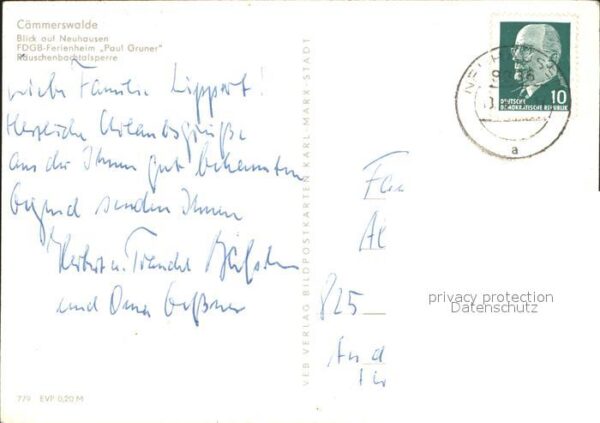 Cämmerswalde
Blick auf Neuhausen
FDGB-Ferienheim „Paul Gruner"
Rauschenbachtalsperre
Liebe Familie Lippert!
Herzliche Urlaubsgrüße
aus der Ihnen gut bekannten
Gegend senden Ihnen
Herbert u. Traudel
und Oma
VEB VERLAG BILDPOSTKARTEN KARL-MARX-STADT
10
DEUTSCHE
DEMOKRATISCHE REPUBLIK
a
Fam
825
privacy protection
Datenschutz
779 EVP 0,20 M